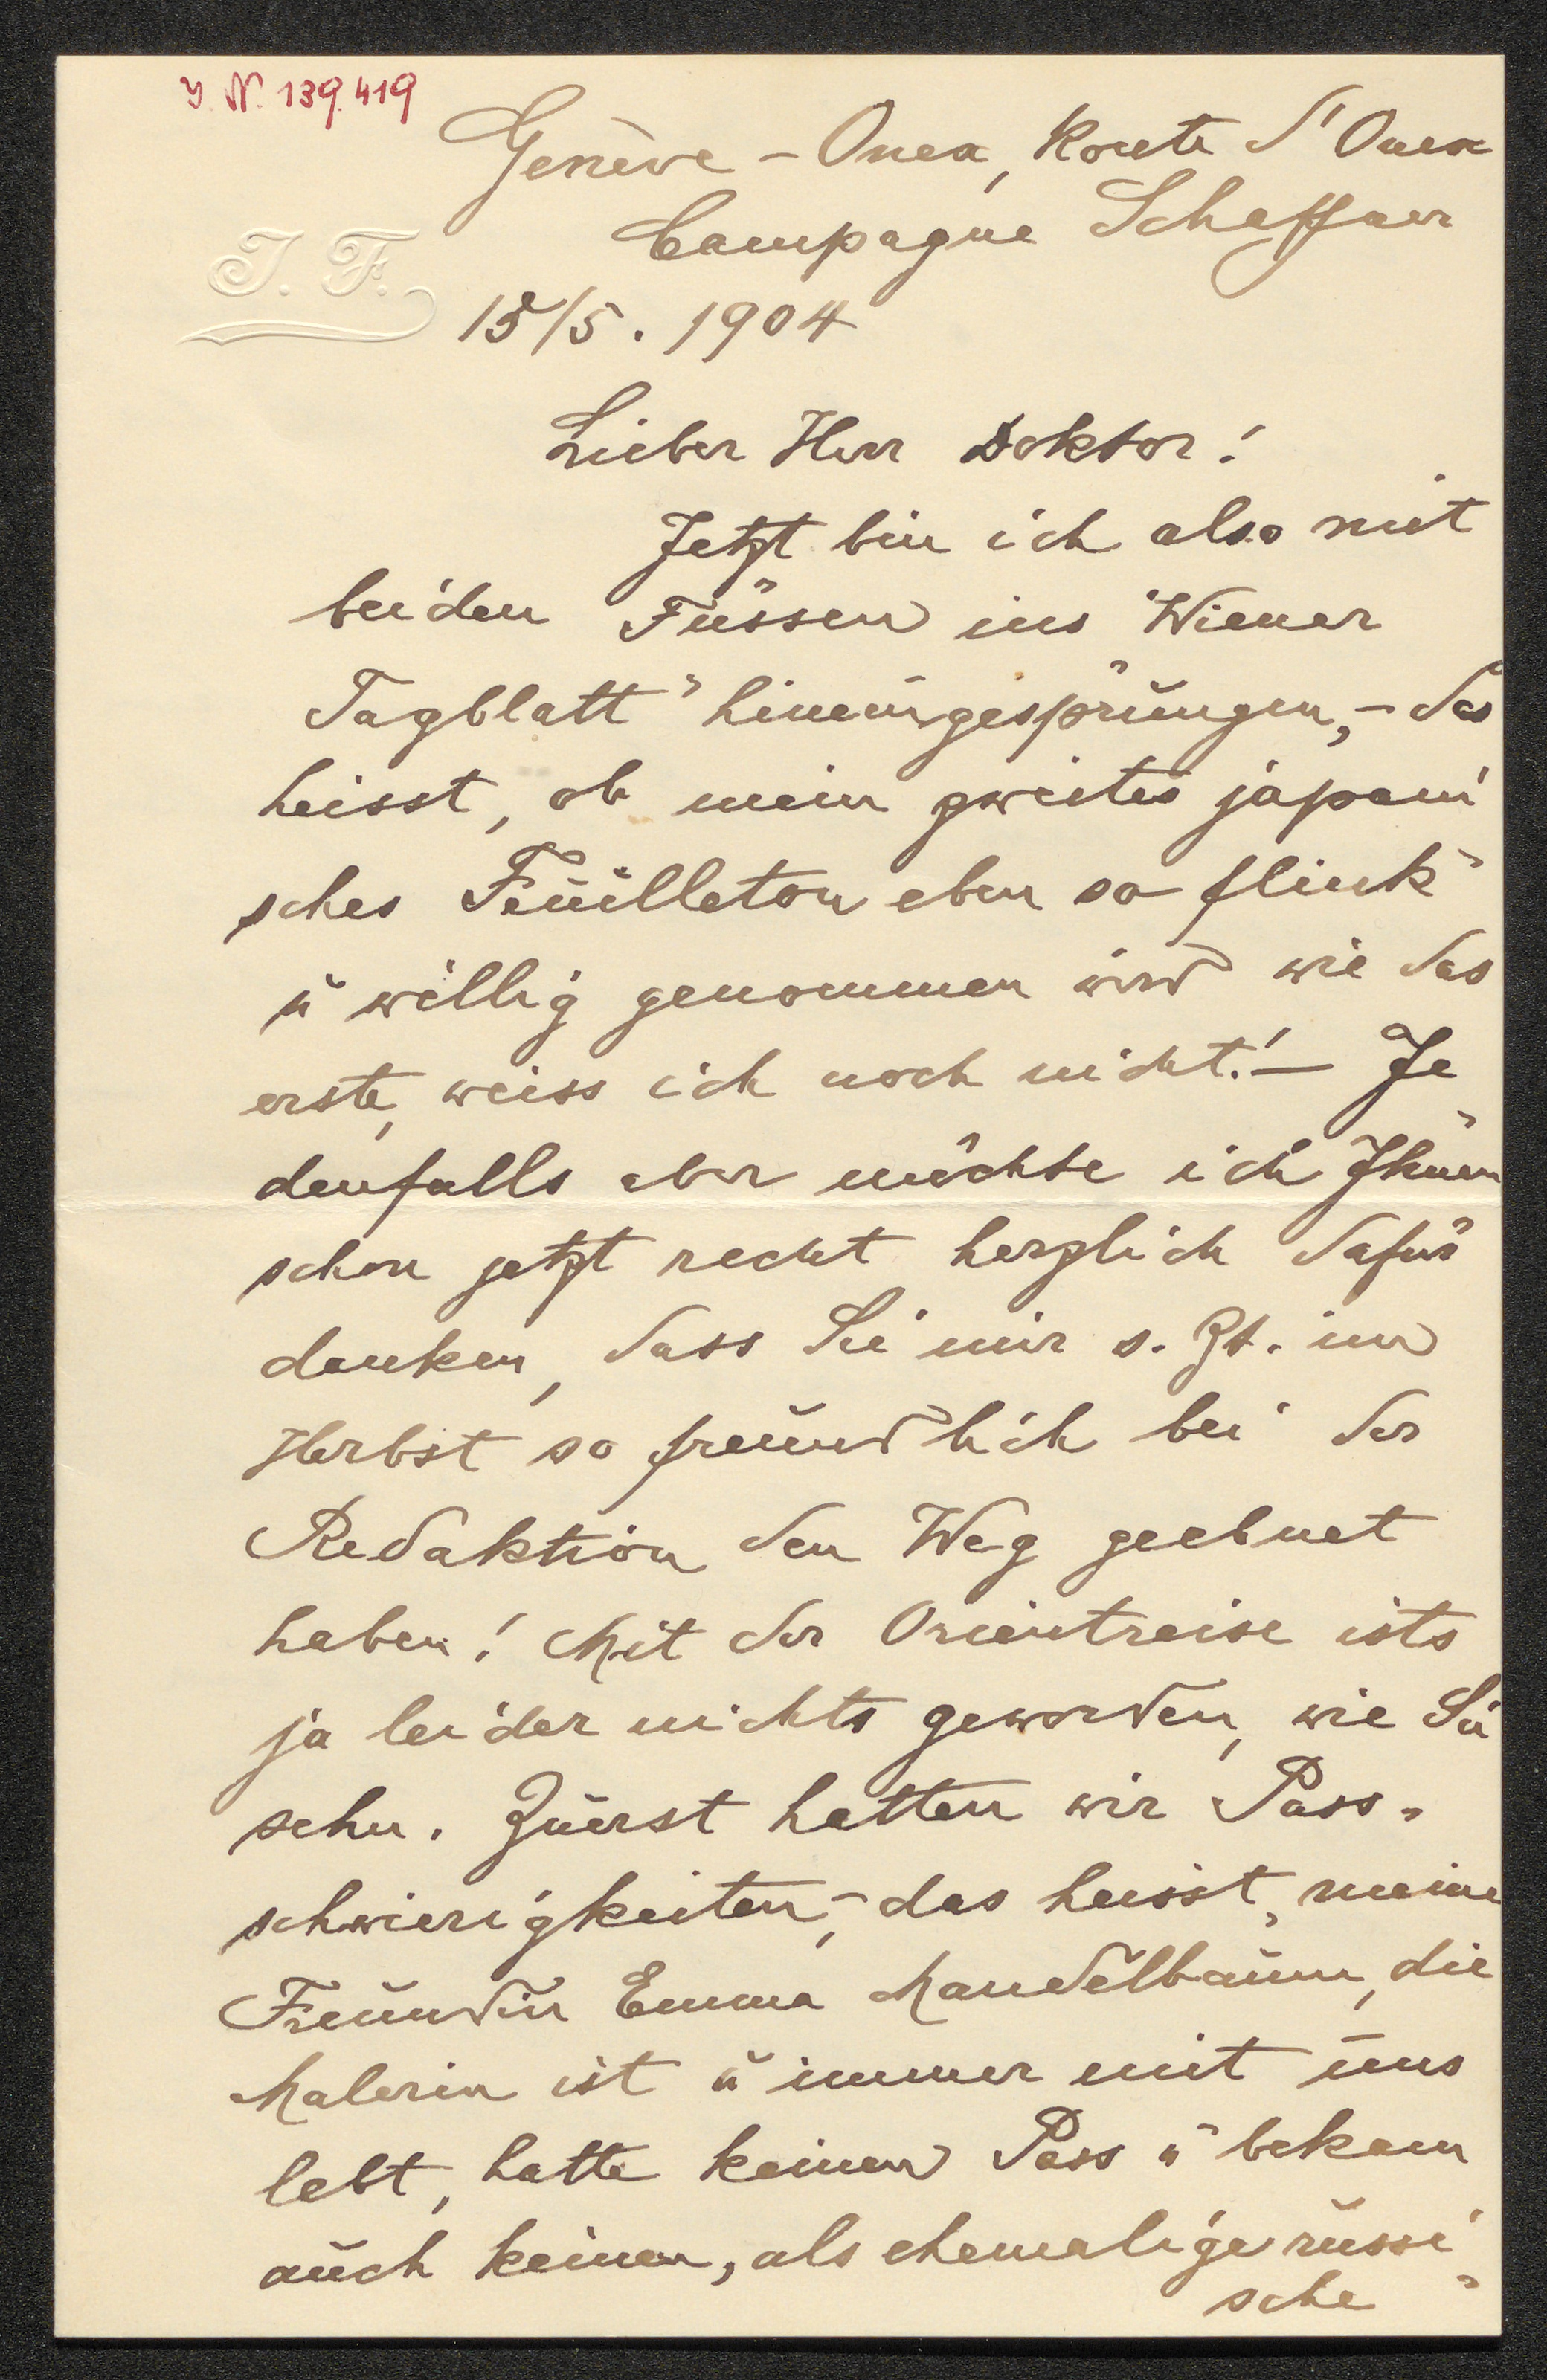 J. N. 139.419
Genève – Onex, Route d'Onex
Campagne Schaffner
J. F.
15/5. 1904
Lieber Herr Doktor!
Jetzt bin ich also mit
beiden Füssen ins "Wiener
Tagblatt" hineingesprungen, – das
heisst, ob mein zweites japani
sches Feuilleton eben so flink
u willig genommen wird wie das
erste, weiss ich noch nicht! – Je
denfalls aber möchte ich Ihnen
schon jetzt recht herzlich dafür
danken, dass Sie mir s. Zt. im
Herbst so freundlich bei der
Redaktion den Weg geebnet
haben! Mit der Orientreise ists
ja leider nichts geworden, wie Sie
sehn. Zuerst hatten wir Pass-
schwierigkeiten, – das heisst, meine
Freundin Emma Mandelbaum, die
Malerin ist u immer mit uns
lebt, hatte keinen Pass u bekam
auch keinen, als ehemalige russi
sche